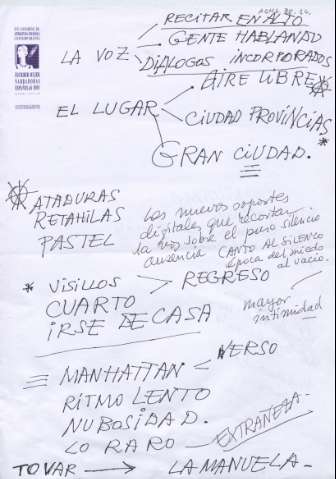 RECITAR EN ALTO
LA VOZ
GENTE HABLANDO
DIALOGOS INCORPORADOS
AIRE LIBRE
EL LUGAR
CIUDAD PROVÍNCIAS
GRAN CIUDAD.
ATADURAS
RETAHILAS
PASTEL
Los nuevos soportes
digitales que recortan
la voz sobre el puro silencio
ausencia CANTO AL SILENCIO
época del miedo
al vacío.
* VISILLOS > REGRESO
CUARTO
IRSE DE CASA
mayor
intimidad
MANHATTAN < VERSO
RITMO LENTO
NUBOSIDAD.
LO RARO
EXTRANEZA
TOVAR → LA MANUELA